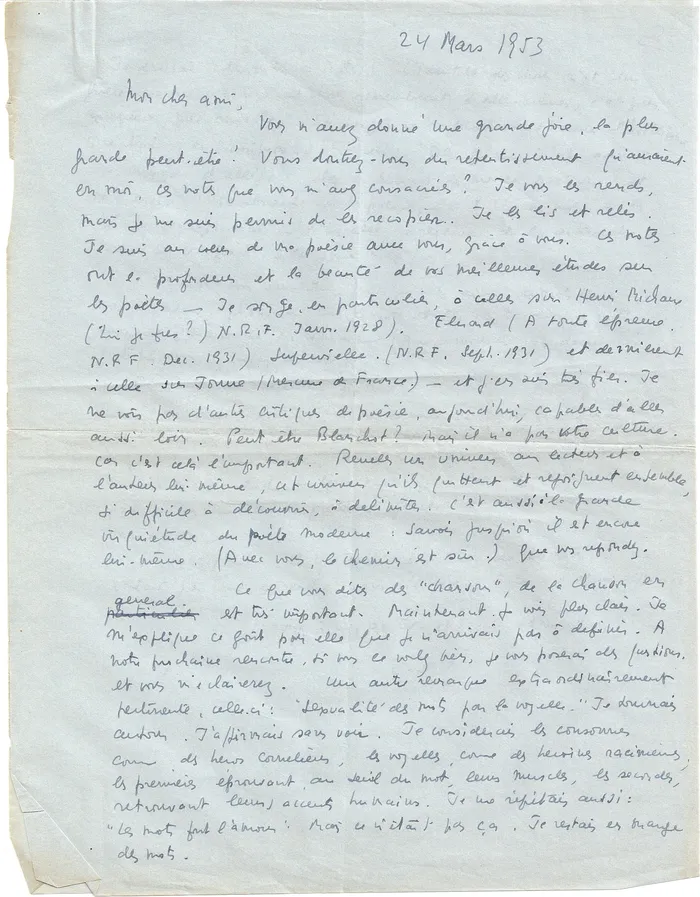 24 Mars 1953
Mon cher ami,
Vous m'avez donné une grande joie, la plus
grande peut-être ! Vous doutez-vous du retentissement qu'auraient
en moi, ces notes que vous m'avez consacrées ? Je vous les rends,
mais je me suis permis de les recopier. Je les lis et relis.
Je suis au coeur de ma poésie avec vous, grâce à vous. Ces notes
ont la profondeur et la beauté de vos meilleures études sur
les poètes — Je songe, en particulier, à celles sur Henri Michaux
(Qui je fus ?) N.R.F. Janv. 1928). Eluard (A toute épreuve.
N.R.F. Dec. 1931) Supervielle. (N.R.F. Sept. 1931) et dernièrement
à celle sur Jouve (Mercure de France.) — et j'en suis très fier. Je
ne vois pas d'autres critiques de poésie, aujourd'hui, capables d'aller
aussi loin. Peut être Blanchot ? mais il n'a pas votre culture.
Car c'est celà l'important. Révéler un univers au lecteur et à
l'auteur lui-même, cet univers qu'ils quittent et rejoignent ensemble,
si difficile à découvrir, à délimiter. C'est aussi la grande
inquiétude du poète moderne : savoir jusqu'où il est encore
lui-même. (Avec vous, le chemin est sûr.) Que vous répondez.
Ce que vous dites des "chansons", de la chanson en
général
particulier et très important. Maintenant je vois plus clair. Je
m'explique ce goût pour elle que je n'arrivais pas à définir. A
notre prochaine rencontre, si vous le voulez bien, je vous poserai des questions.
et vous m'éclairerez. Une autre remarque extraordinairement
pertinente, celle-ci : "Sexualité des mots par la voyelle." Je tournais
autour. J'affirmais sans voir. Je considérais les consonnes
comme des héros cornéliens, les voyelles, comme des héroïnes raciniennes,
les premiers éprouvant, au seuil du mot, leurs muscles, les secondes,
retrouvant leurs accents humains. Je me répétais aussi :
"Les mots font l'amour". Mais ce n'était pas ça. Je restais en marge
des mots.